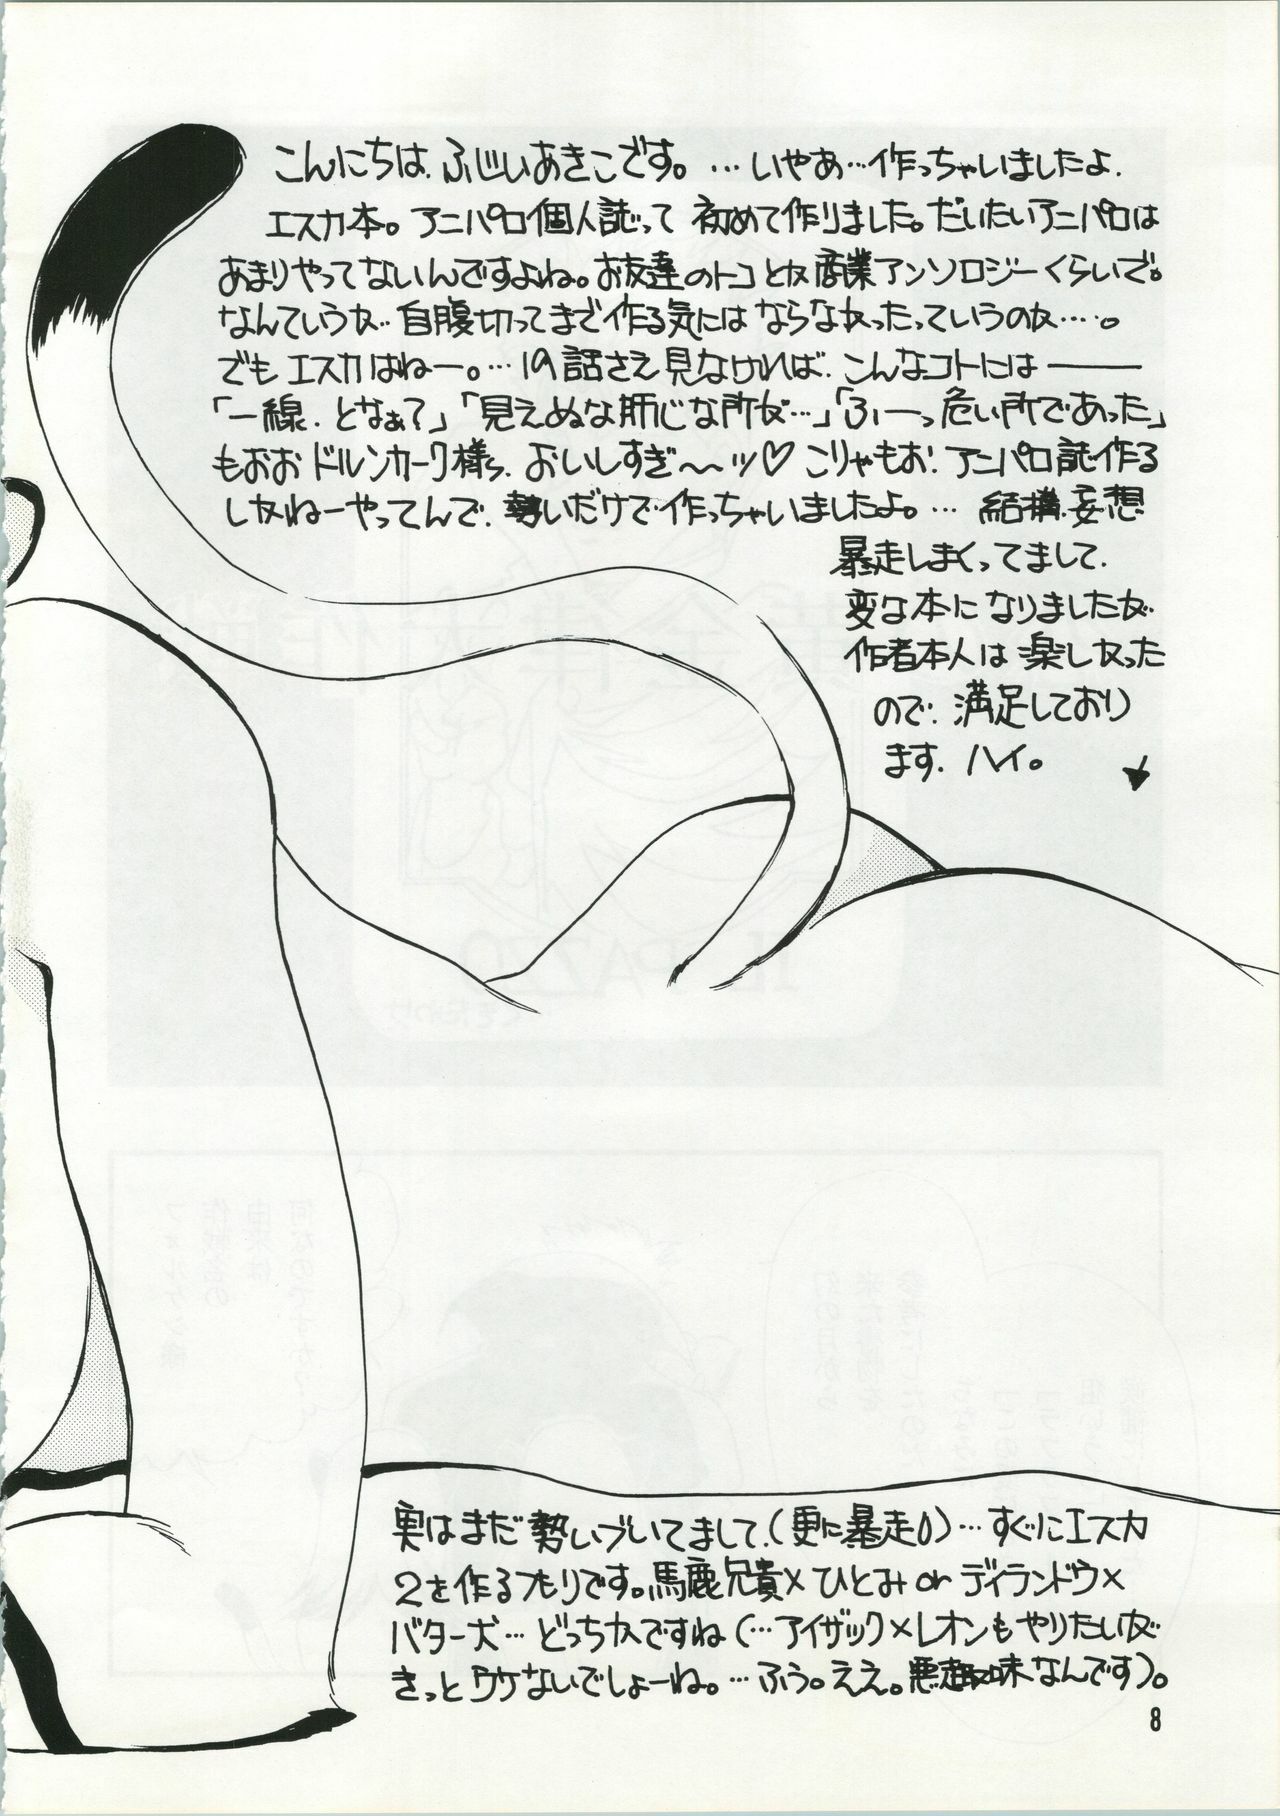 こんにちは、ふじいあきこです。…いやあ…作っちゃいましたよ、
エスカ本。アニパロ個人誌って 初めて作りました。だいたいアニパロは
あまりやってないんですよね。お友達のトコとか商業アンソロジーくらいで。
なんていうか…自腹切ってまで作る気にはならなかったっていうのか…。
でもエスカはねー。…19話さえ見なければ、こんなコトには――
「一線、となぁ?」「見えぬな肝じな所が…」「ふーっ危い所であった」
もおおドルンカーク様っ、おいしすぎ〜〜ッ♡こりゃもお、アニパロ誌作る
しかねーやってんで、勢いだけで作っちゃいましたよ。…結構、妄想
暴走しまくってまして、
変な本になりましたが
作者本人は楽しかった
ので、満足しており
ます、ハイ。
実はまだ勢いづいてまして、(更に暴走の)…すぐにエスカ
2を作るつもりです。馬鹿兄貴×ひとみorディランドウ×
バター犬…どっちかですね(…アイザック×レオンもやりたいが
きっとウケないでしょーね。…ふう。ええ。悪趣味なんです)。
8